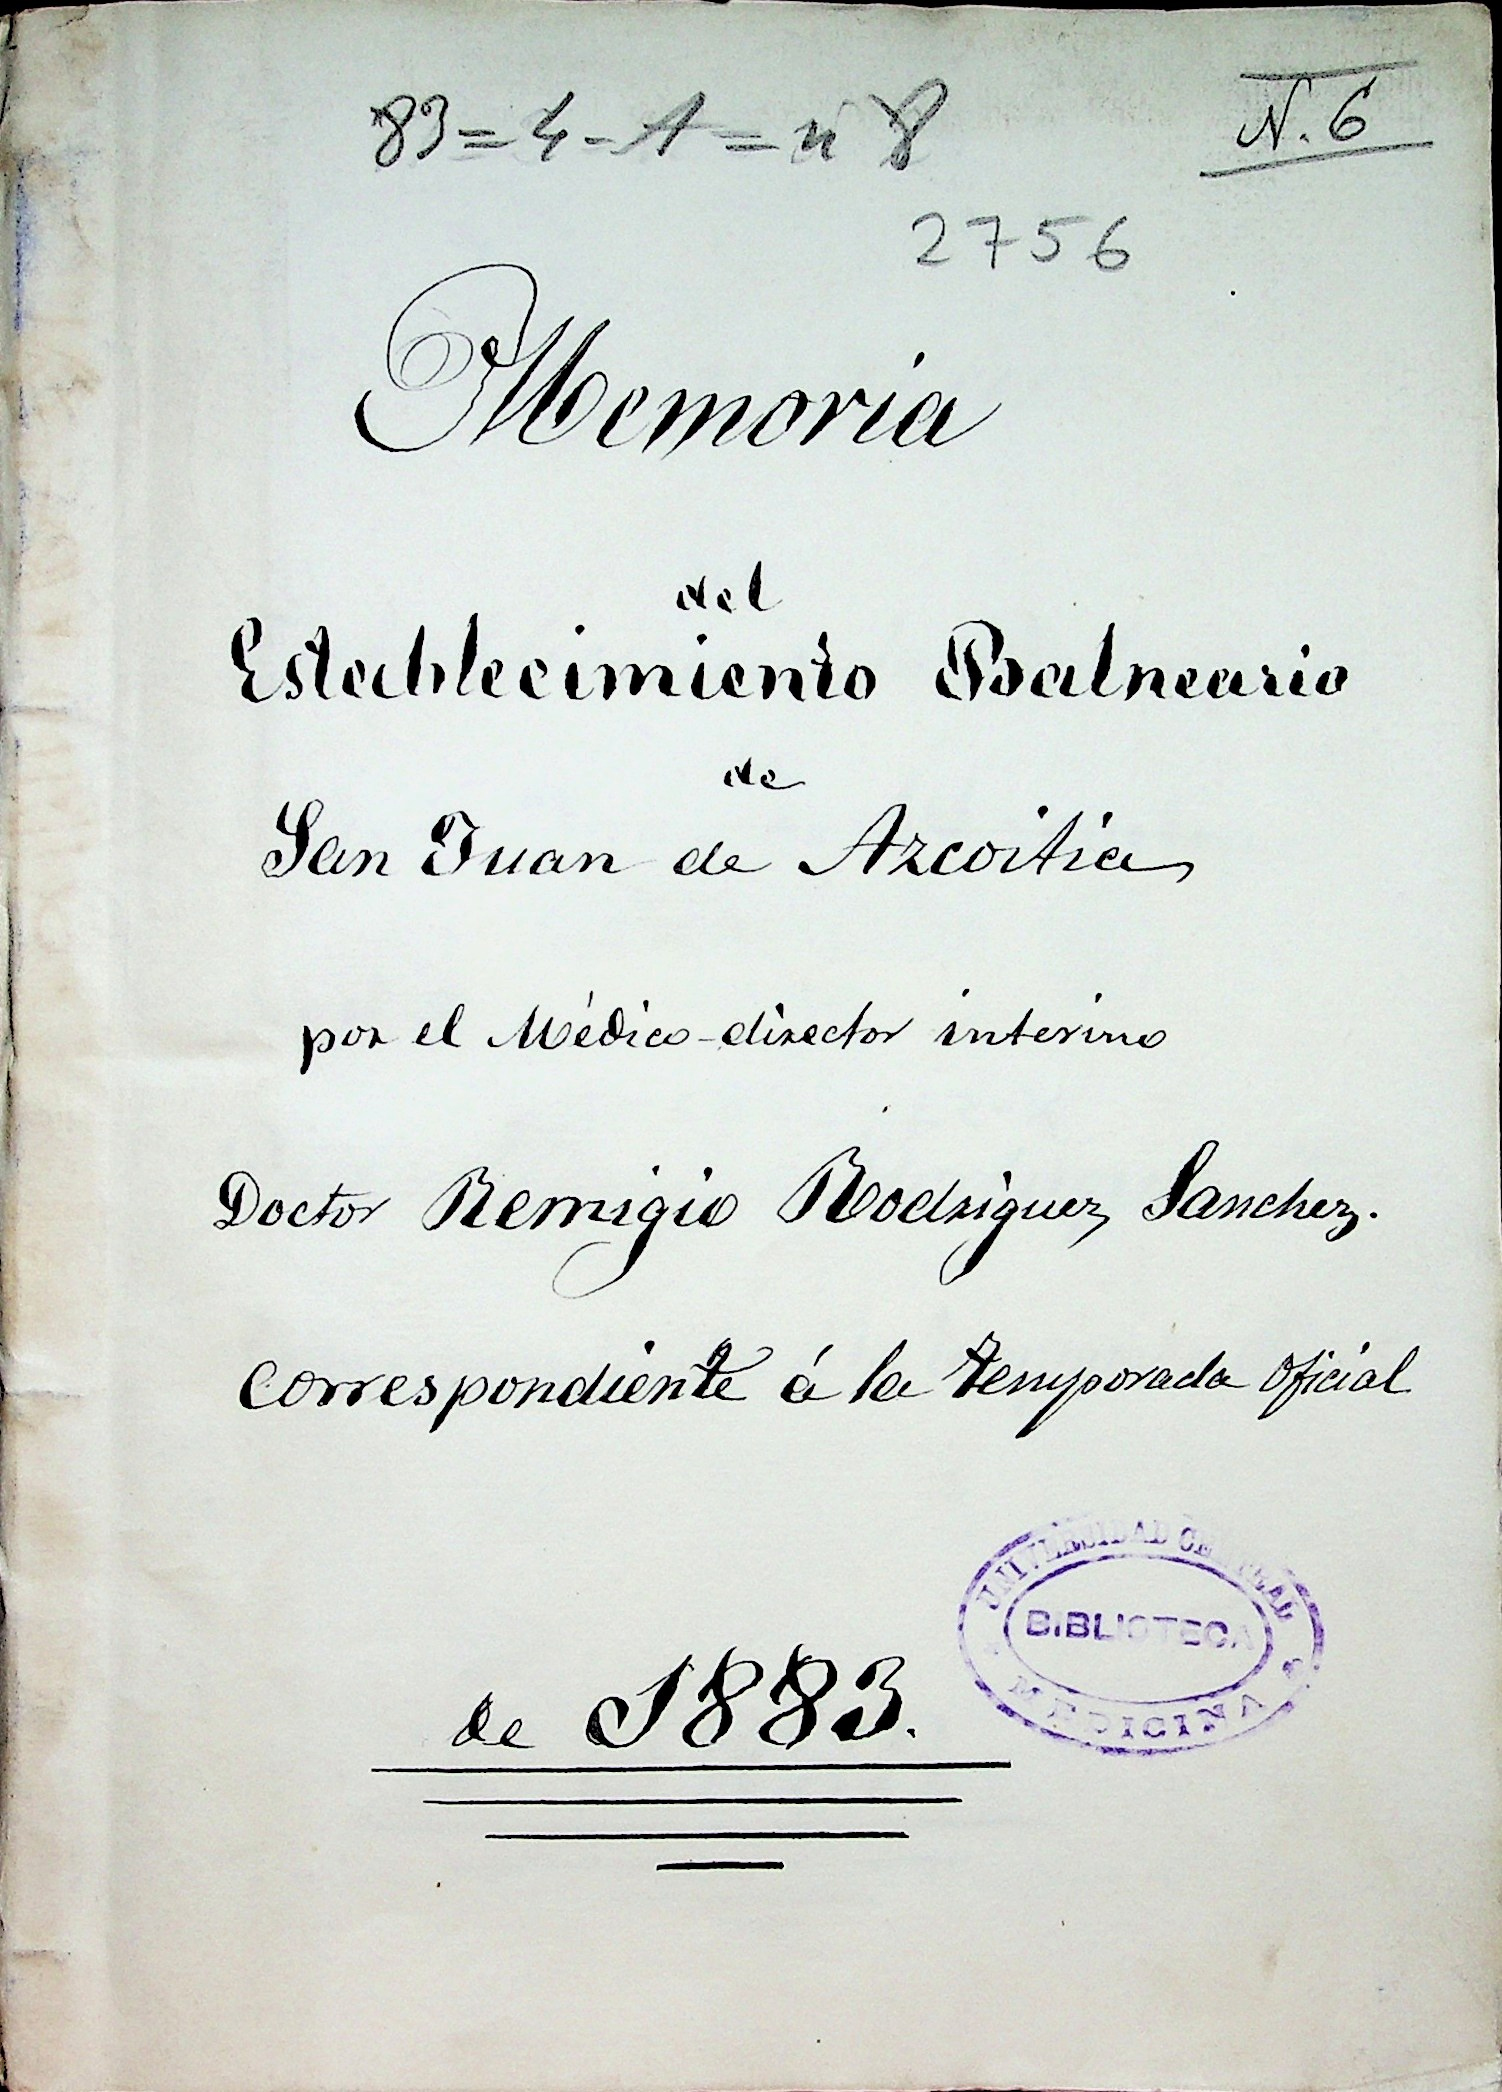 83=4-A=n 8
N. 6
2756
Memoria
del
Establecimiento Balneario
de
San Juan de Azcoitia
por el Médico-director interino
Doctor Remigio Rodriguez Sanchez.
Correspondiente á la temporada oficial
de 1883.
UNIVERSIDAD CENTRAL
BIBLIOTECA
MEDICINA